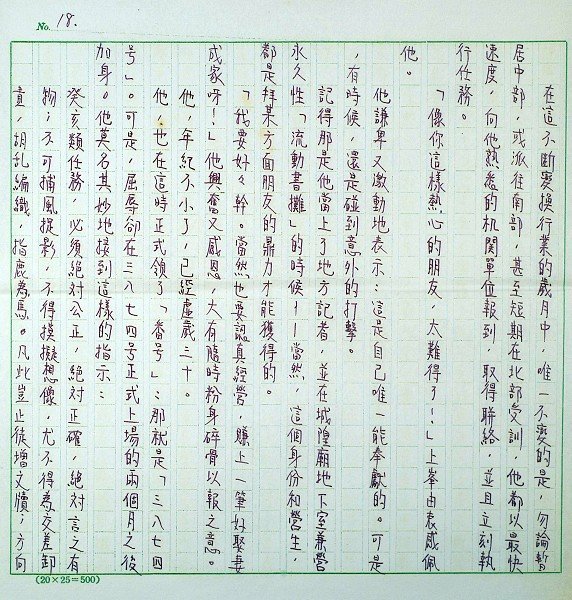 No. 18.
在這不斷變換行業的歲月中，唯一不變的是，勿論暫
居中部，或派往南部，甚至短期在北部受訓，他都以最快
速度，向他熟悉的机関單位報到，取得聯絡，並且立刻執
行任務。
「像你這樣熱心的朋友，太難得了！」上峯由衷感佩
他。
他謙卑又激動地表示：這是自己唯一能奉獻的。可是
，有時候，還是碰到意外的打擊。
記得那是他當上了地方記者，並在城隍廟地下室兼營
永久性「流動書攤」的時候——當然，這個身份和營生，
都是拜某方面朋友的鼎力才能獲得的。
「我要好々幹。當然也要認真經營，賺上一筆好娶妻
成家呀！」他興奮又感恩，大有隨時粉身碎骨以報之意。
他，年紀不小了，已經虛歲三十。
他，也在這時正式領了「番号」：那就是「三八七四
号」。可是，屈辱卻在三八七四号正式上場的兩個月之後
加身。他莫名其妙地接到這樣的指示：
癸亥類任務，必須絕對公正，絕對正確，絕對言之有
物；不可捕風捉影，不得摸擬想像，尤不得為交差卸
責，胡乱編織，指鹿為馬。凡此豈止徒增文牘；方向
(20×25=500)